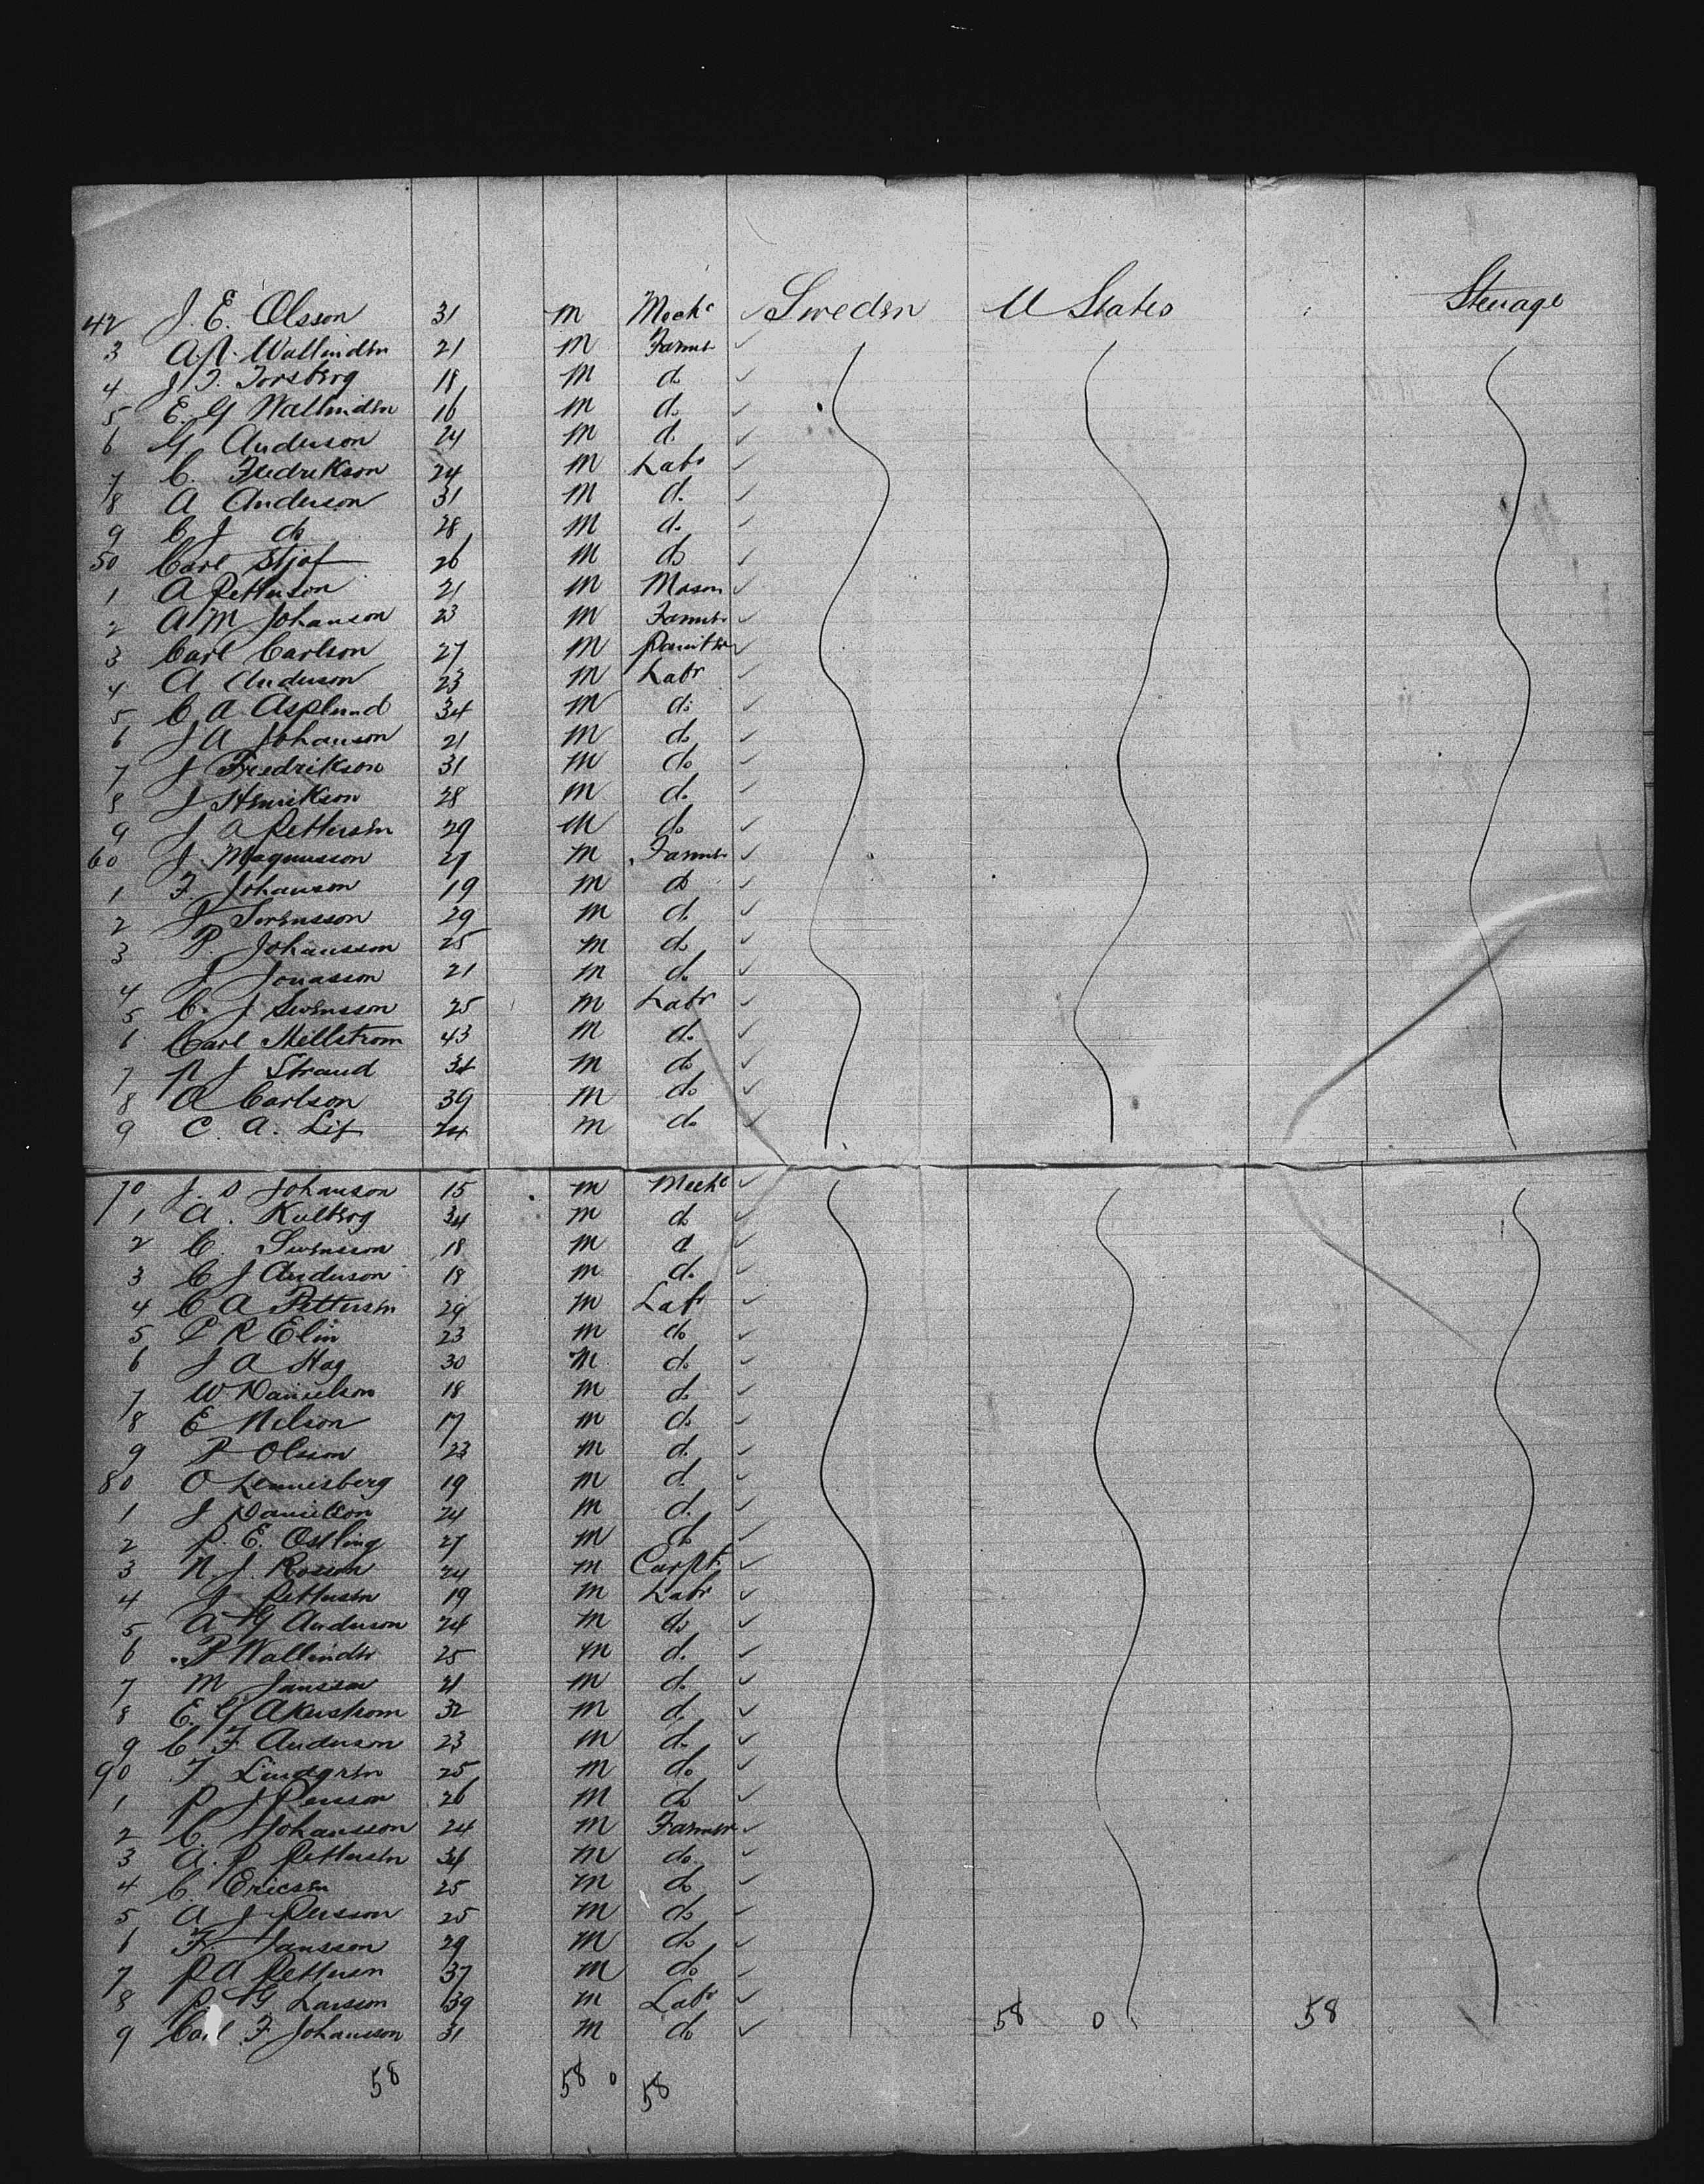 42 J. E. Olsson 31 m Mechc ✓ Sweden U States Steerage
3 A. P. Wallinder 21 m Farmer ✓
4 J. F. Forsberg 18 m do ✓
5 E. G Wallinder 16 m do ✓
6 G Anderson 24 m do ✓
7 C. Fredrikson 24 m Labr ✓
8 A Anderson 31 m do ✓
9 C J do 28 m do ✓
50 Carl 26 m do ✓
1 A Petterson 21 m Mason ✓
2 A M Johanson 23 m Farmer ✓
3 Carl Carlson 27 m Painter ✓
4 A Anderson 23 m Labr ✓
5 C A Asplund 34 m do ✓
6 J A Johanson 21 m do ✓
7 J Fredrikson 31 m do ✓
8 J Henrikson 28 m do ✓
9 J A Petterson 29 m do ✓
60 J. Magnusson 27 m Farmer ✓
1 F. Johanson 19 m do ✓
2 J Sorensson 29 m do ✓
3 P. Johansson 25 m do ✓
4 J Jonasson 21 m do ✓
5 C. J Svensson 25 m Labr ✓
6 Carl Mellstrom 43 m do ✓
7 P J Strand 34 m do ✓
8 A Carlson 39 m do ✓
9 C. A. 24 m do ✓
70 J. Johanson 15 m Mechc ✓
1 A. Kulberg 34 m do ✓
2 C. Swensson 18 m do ✓
3 C J Anderson 18 m do ✓
4 C A Petterson 29 m Labr ✓
5 P R Elin 23 m do ✓
6 J A Hag 30 m do ✓
7 W Danielson 18 m do ✓
8 E Nelson 17 m do ✓
9 P Olsson 23 m do ✓
80 O Lennesberg 19 m do ✓
1 J Danielson 24 m do ✓
2 P. E. Ostling 27 m do ✓
3 N. J. Rosson 24 m Carptr ✓
4 J Petterson 19 m Labr ✓
5 A G Anderson 24 m do ✓
6 P Wallinder 25 m do ✓
7 M Jansson 21 m do ✓
8 E. G Akerstrom 32 m do ✓
9 C F Anderson 23 m do ✓
90 F Lindgren 25 m do ✓
1 P J Persson 26 m do ✓
2 C. Johansson 24 m Farmer ✓
3 A. P Petterson 34 m do ✓
4 C. Ericson 25 m do ✓
5 A J Persson 25 m do ✓
6 F. Jansson 29 m do ✓
7 P A Petterson 37 m do ✓
8 P. G Larsson 39 m Labr ✓
9 Carl F Johansson 31 m do ✓ 58 0 58
58 58 0 58